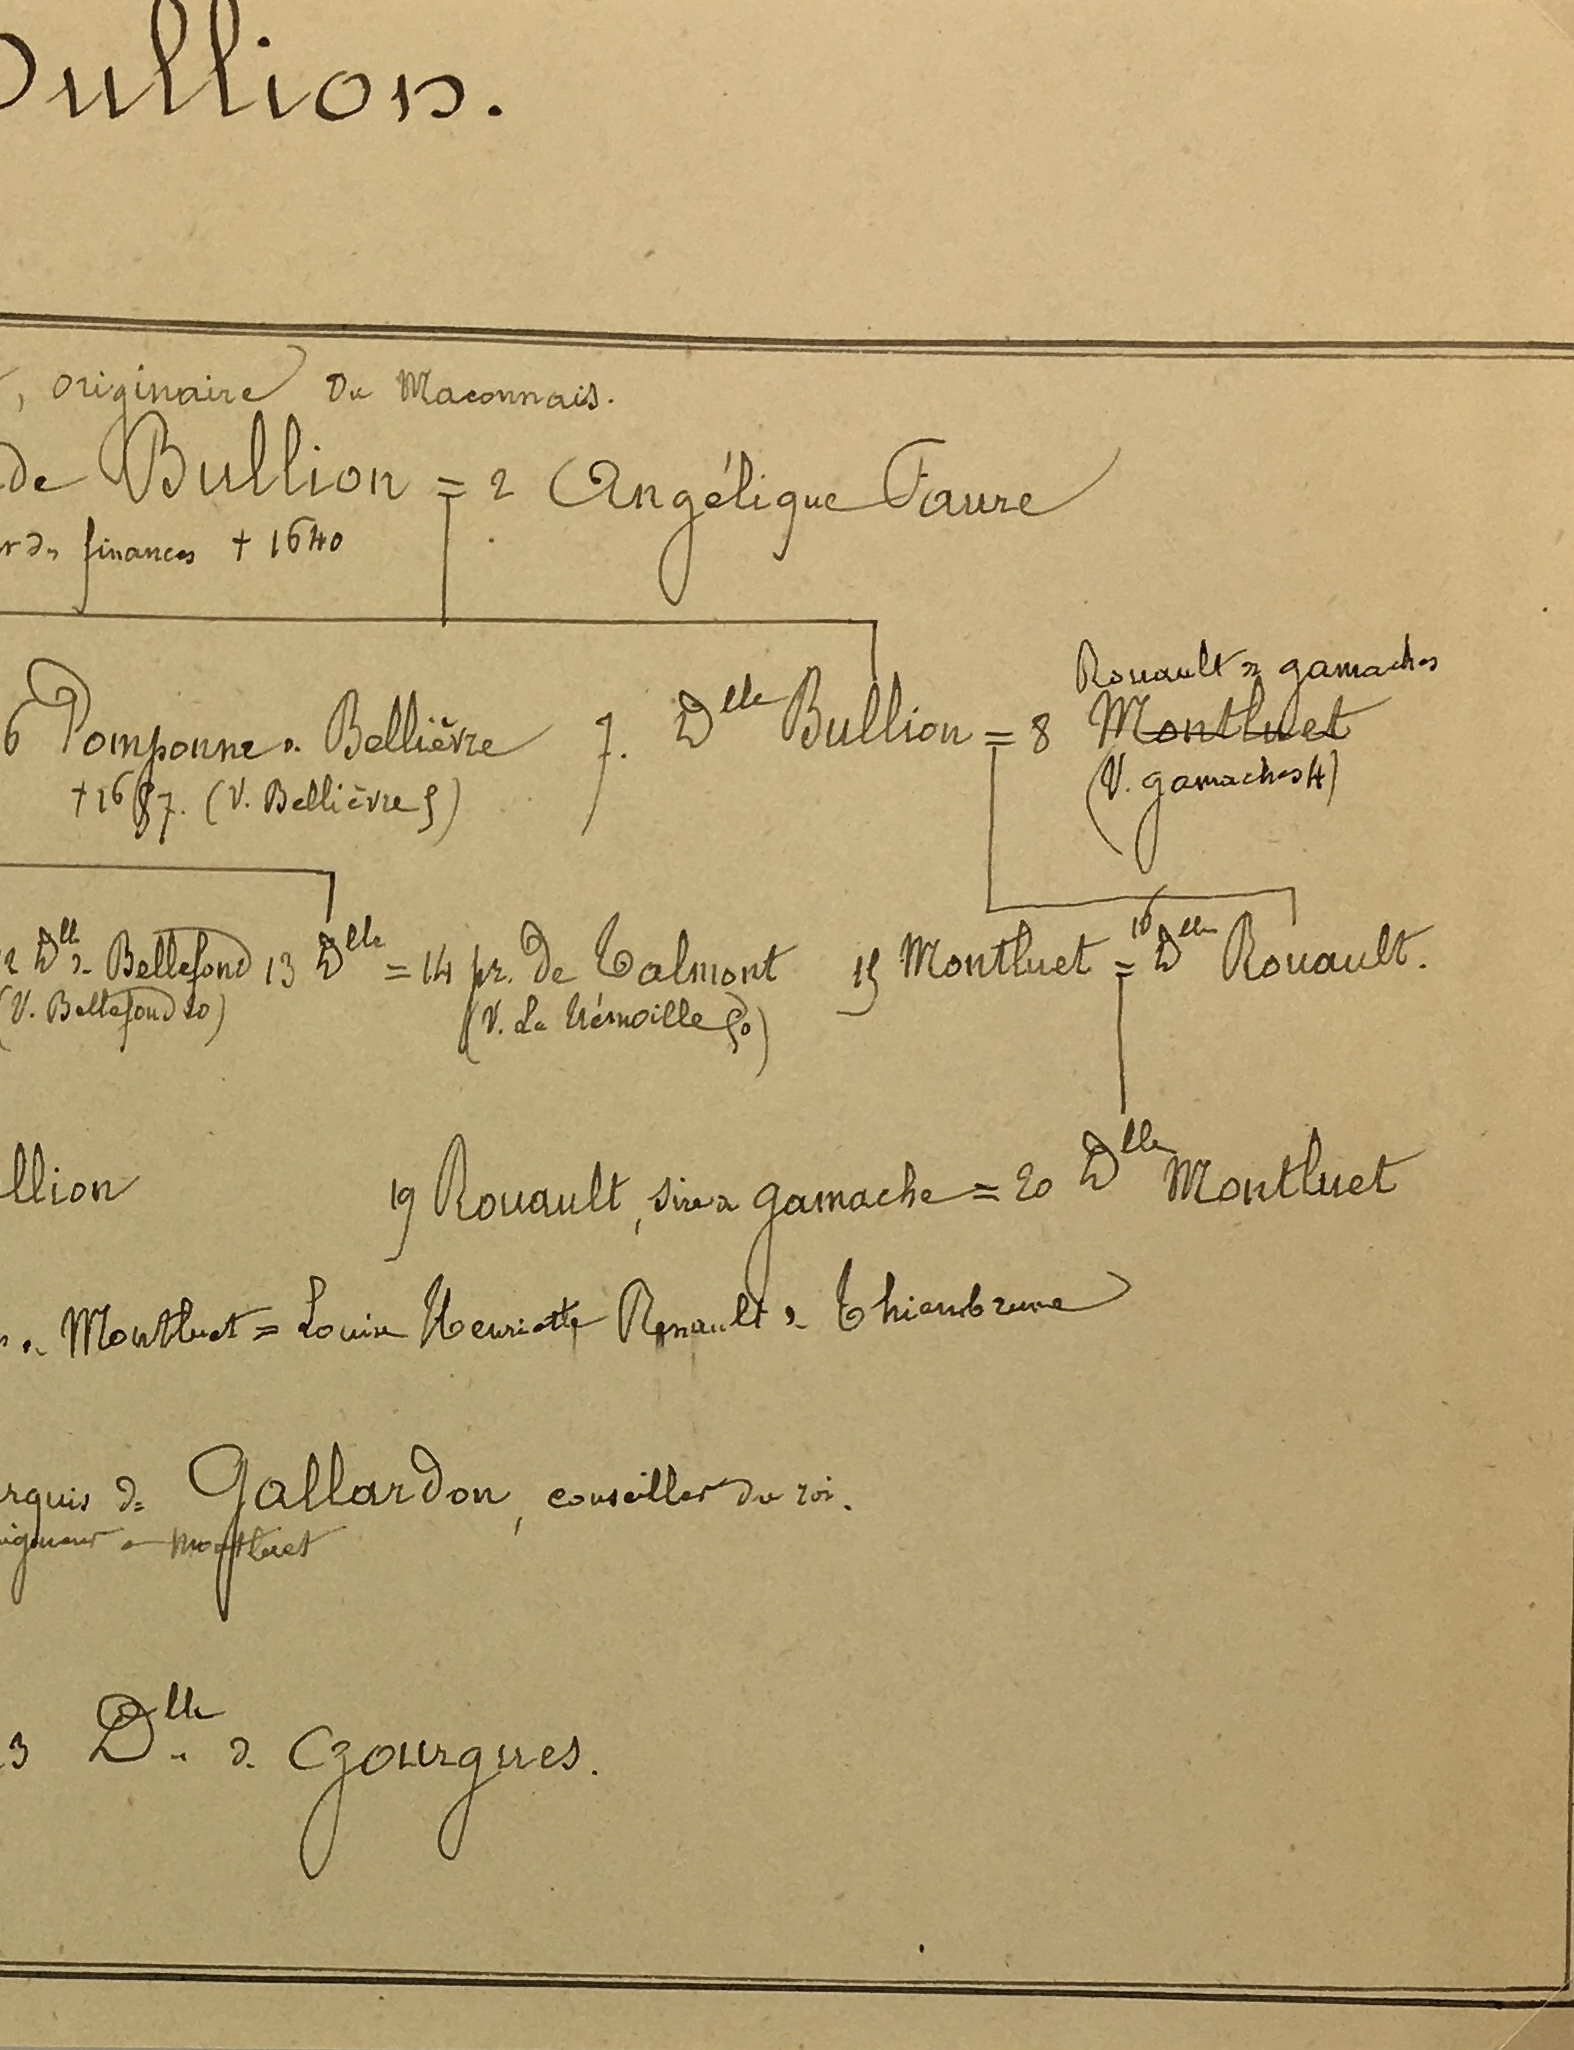 Bullion.
, originaire du Maconnais.
de Bullion = 2 Angélique Faure
finances + 1640
Rouault de gamaches
6 Pomponne de Bellièvre 7. Dlle Bullion = 8 Montluet
+ 1687. (V. Bellièvre 5) (V. gamaches 4)
12 Dlle de Bellefond 13 Dlle = 14 pr. de Talmont 15 Montluet = 16 Dlle Rouault.
(V. Bellefond 20) (V. La Trémoille 50)
llion 19 Rouault, sire de gamache = 20 Dlle Montluet
de Montluet = Louise Henriette Rouault de Thiembrune
rquis de Gallardon, conseiller du roi.
igneur de Montluet
3 Dlle de Gourgues.